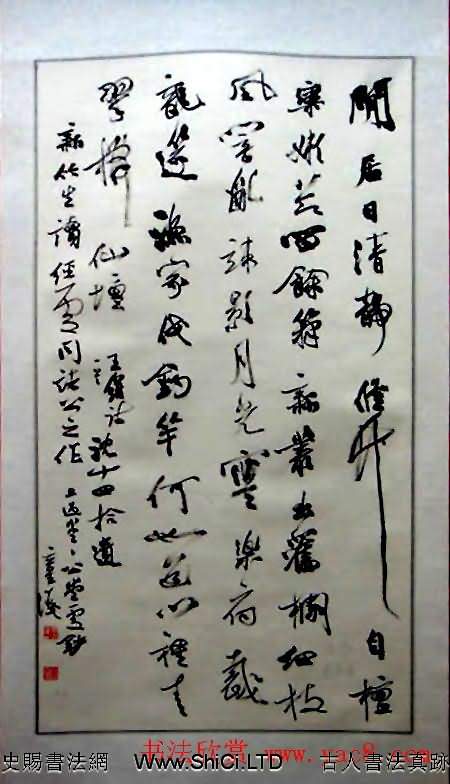 閒居日清靜修竹自檀
欒嫩節留餘籜新叢出舊欄細枝
風響亂疎影月光寒樂府裁
龍笛漁家伐釣竿何如道門裡青
翠拂仙壇 王維詩沈十四拾遺
新竹生讀經處同諸公之作
书法欣赏 www.yac8.com
史賜書法網 www.ShiCi.LTD 古人書法真跡